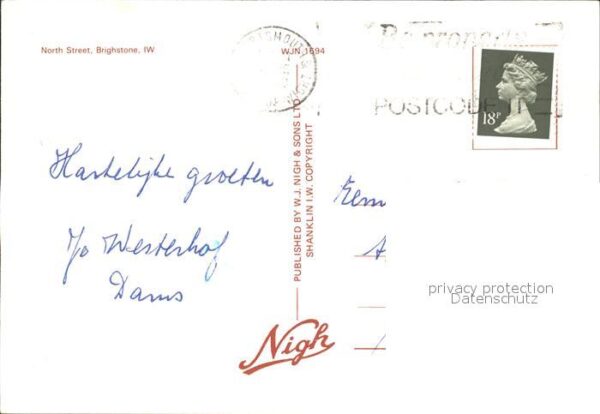 North Street, Brighstone, IW
WJN 1694
POSTCODE IT
18P
Hartelijke groeten
Westerhof
Dams
PUBLISHED BY W.J. NIGH & SONS LTD
SHANKLIN I.W. COPYRIGHT
privacy protection
Datenschutz
Nigh